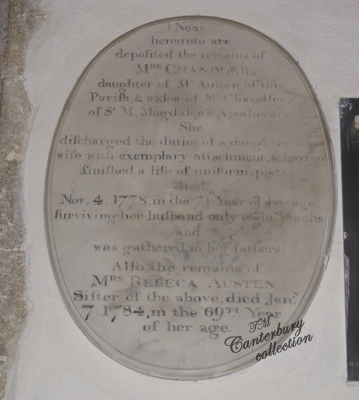 Near
hereunto are
deposited the remains of
MRS CHANDLER,
daughter of Mr Austen of this
Parish, & widow of Mr Chandler,
of St M. Magdalen's Apothecary
She
discharged the duties of a daughter and
wife with exemplary attachment, & having
finished a life of uniform piety
died
Nov. 4. 1778. in the 71 Year of her age;
surviving her husband only Months
and
was gathered to her Fathers.
Also the remains of
MRS REBECA AUSTEN
Sister of the above, died Jany
7. 1784, in the 69th Year
of her age.
TM
Canterbury
collection